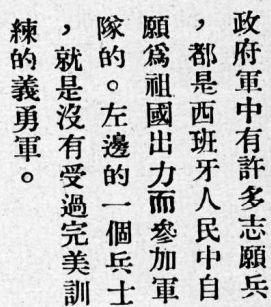 政府軍中有許多志願兵
，都是西班牙人民中自
願爲祖國出力而參加軍
隊的。左邊的一個兵士
，就是沒有受過完美訓
練的義勇軍。